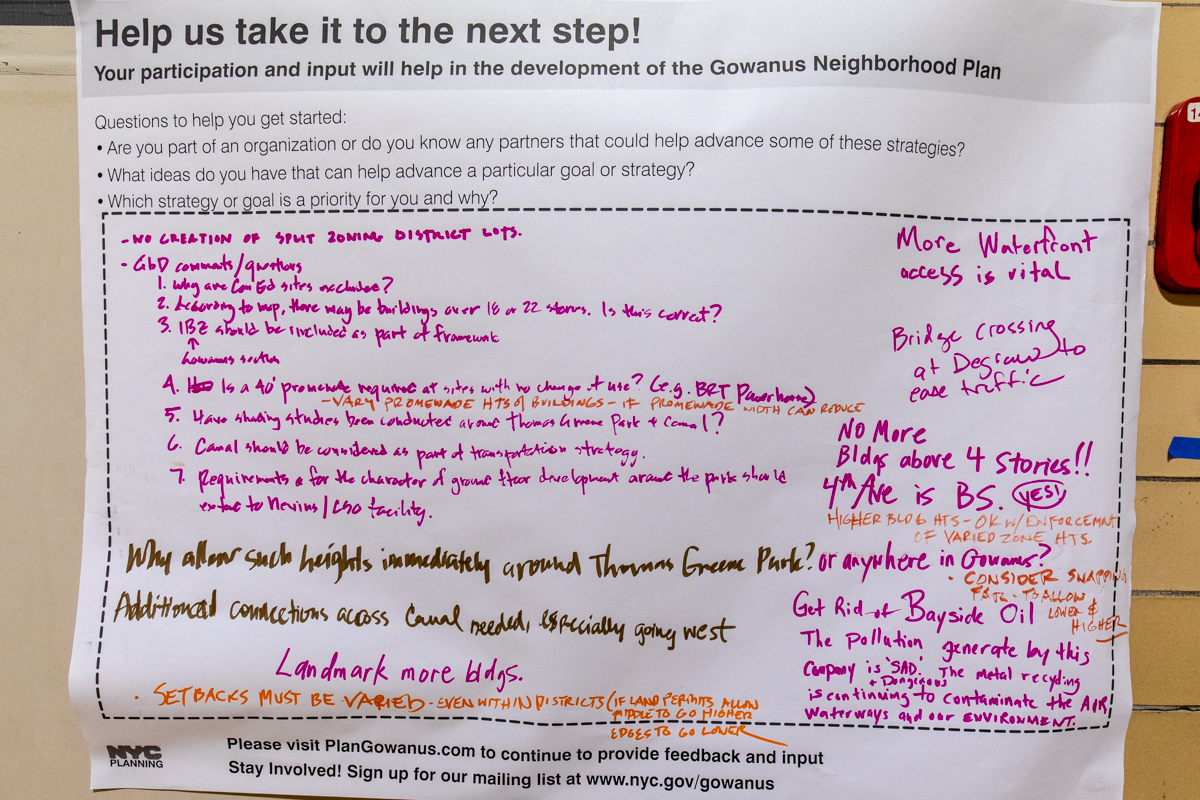 Help us take it to the next step!
Your participation and input will help in the development of the Gowanus Neighborhood Plan
Questions to help you get started:
• Are you part of an organization or do you know any partners that could help advance some of these strategies?
• What ideas do you have that can help advance a particular goal or strategy?
• Which strategy or goal is a priority for you and why?
- NO CREATION OF SPLIT ZONING DISTRICT LOTS.
- GbD comments/questions
1. Why are Con Ed sites excluded?
2. According to map, there may be buildings over 18 or 22 stories. Is this correct?
3. IBZ should be included as part of framework
↑
Gowanus section
4. Is a 40' promenade required at sites with no change of use? (e.g. BRT Powerhouse)
- VARY PROMENADE HTS of BUILDINGS - IF PROMENADE WIDTH CAN REDUCE
5. Have shading studies been conducted around Thomas Greene Park + Canal?
6. Canal should be considered as part of transportation strategy.
7. Requirements for the character of ground floor development around the park should
extend to Nevins/CSO facility.
Why allow such heights immediately around Thomas Greene Park? or anywhere in Gowanus?
Additional connections across Canal needed, especially going west
Landmark more bldgs.
· SETBACKS MUST BE VARIED - EVEN WITHIN DISTRICTS (IF LAND PERMITS ALLOW
MIDDLE TO GO HIGHER
EDGES TO GO LOWER
More Waterfront
access is vital
Bridge crossing
at Degraw to
ease traffic
NO More
Bldgs above 4 Stories!!
4th Ave is BS. YES!
HIGHER BLDG HTS - OK W/ ENFORCEMNT
OF VARIED ZONE HTS.
· CONSIDER
TO ALLOW
LOWER &
HIGHER
Get Rid of Bayside Oil
The Pollution generate by this
Company is 'SAD'. The metal recycling
+ Dangerous
is continuing to contaminate the AIR,
Waterways and our ENVIRONMENT.
NYC
PLANNING
Please visit PlanGowanus.com to continue to provide feedback and input
Stay Involved! Sign up for our mailing list at www.nyc.gov/gowanus